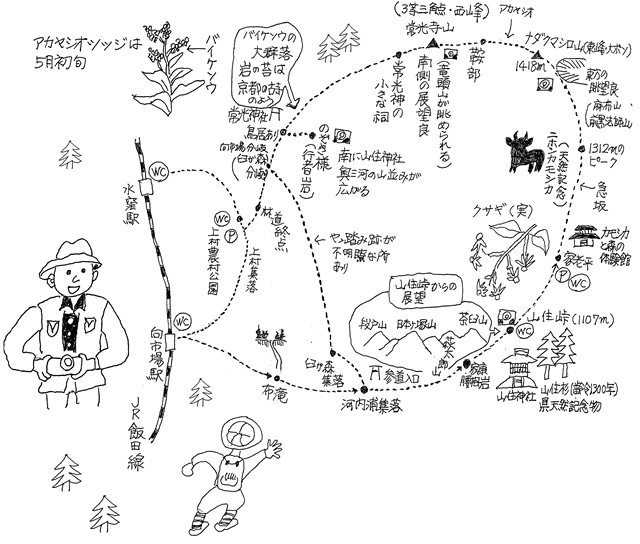 アカヤシオツツジは
5月初旬
バイケソウ
バイケソウの
大群落
岩の苔は
京都の古寺
のよう
常光神社
鳥居あり
向市場分岐
(臼が森
分岐)
のぞき様
(行者岩)
南に山住神社
奥三河の山並みが
広がる
常光神の
小さな祠
(3等三角点・西峰)
常光寺山
南側の展望良
(竜頭山が眺められる)
鞍部
アカヤシオ
ナダクマシロ山(東峰大ボツ)
1418m
東方の
眺望良
(麻布山
前黒法師山)
1312mの
ピーク
ニホンカモシカ
(天然記念)
急坂
クサギ(実)
カモシカ
と森の
体験館
家老平
P
WC
山住峠(1107m)
WC
山住峠からの
展望
段戸山
日本ヶ塚山
茶臼山
萩太郎山
家康
腰掛岩
山住神社
山住杉(樹令1300年)
県天然記念物
参道入口
河内浦集落
臼が森
集落
布滝
やゝ踏み跡が
不明瞭な所
あり
林道終点
上村集落
上村農村公園
WC
P
水窪駅
WC
向市場駅
WC
JR飯田線